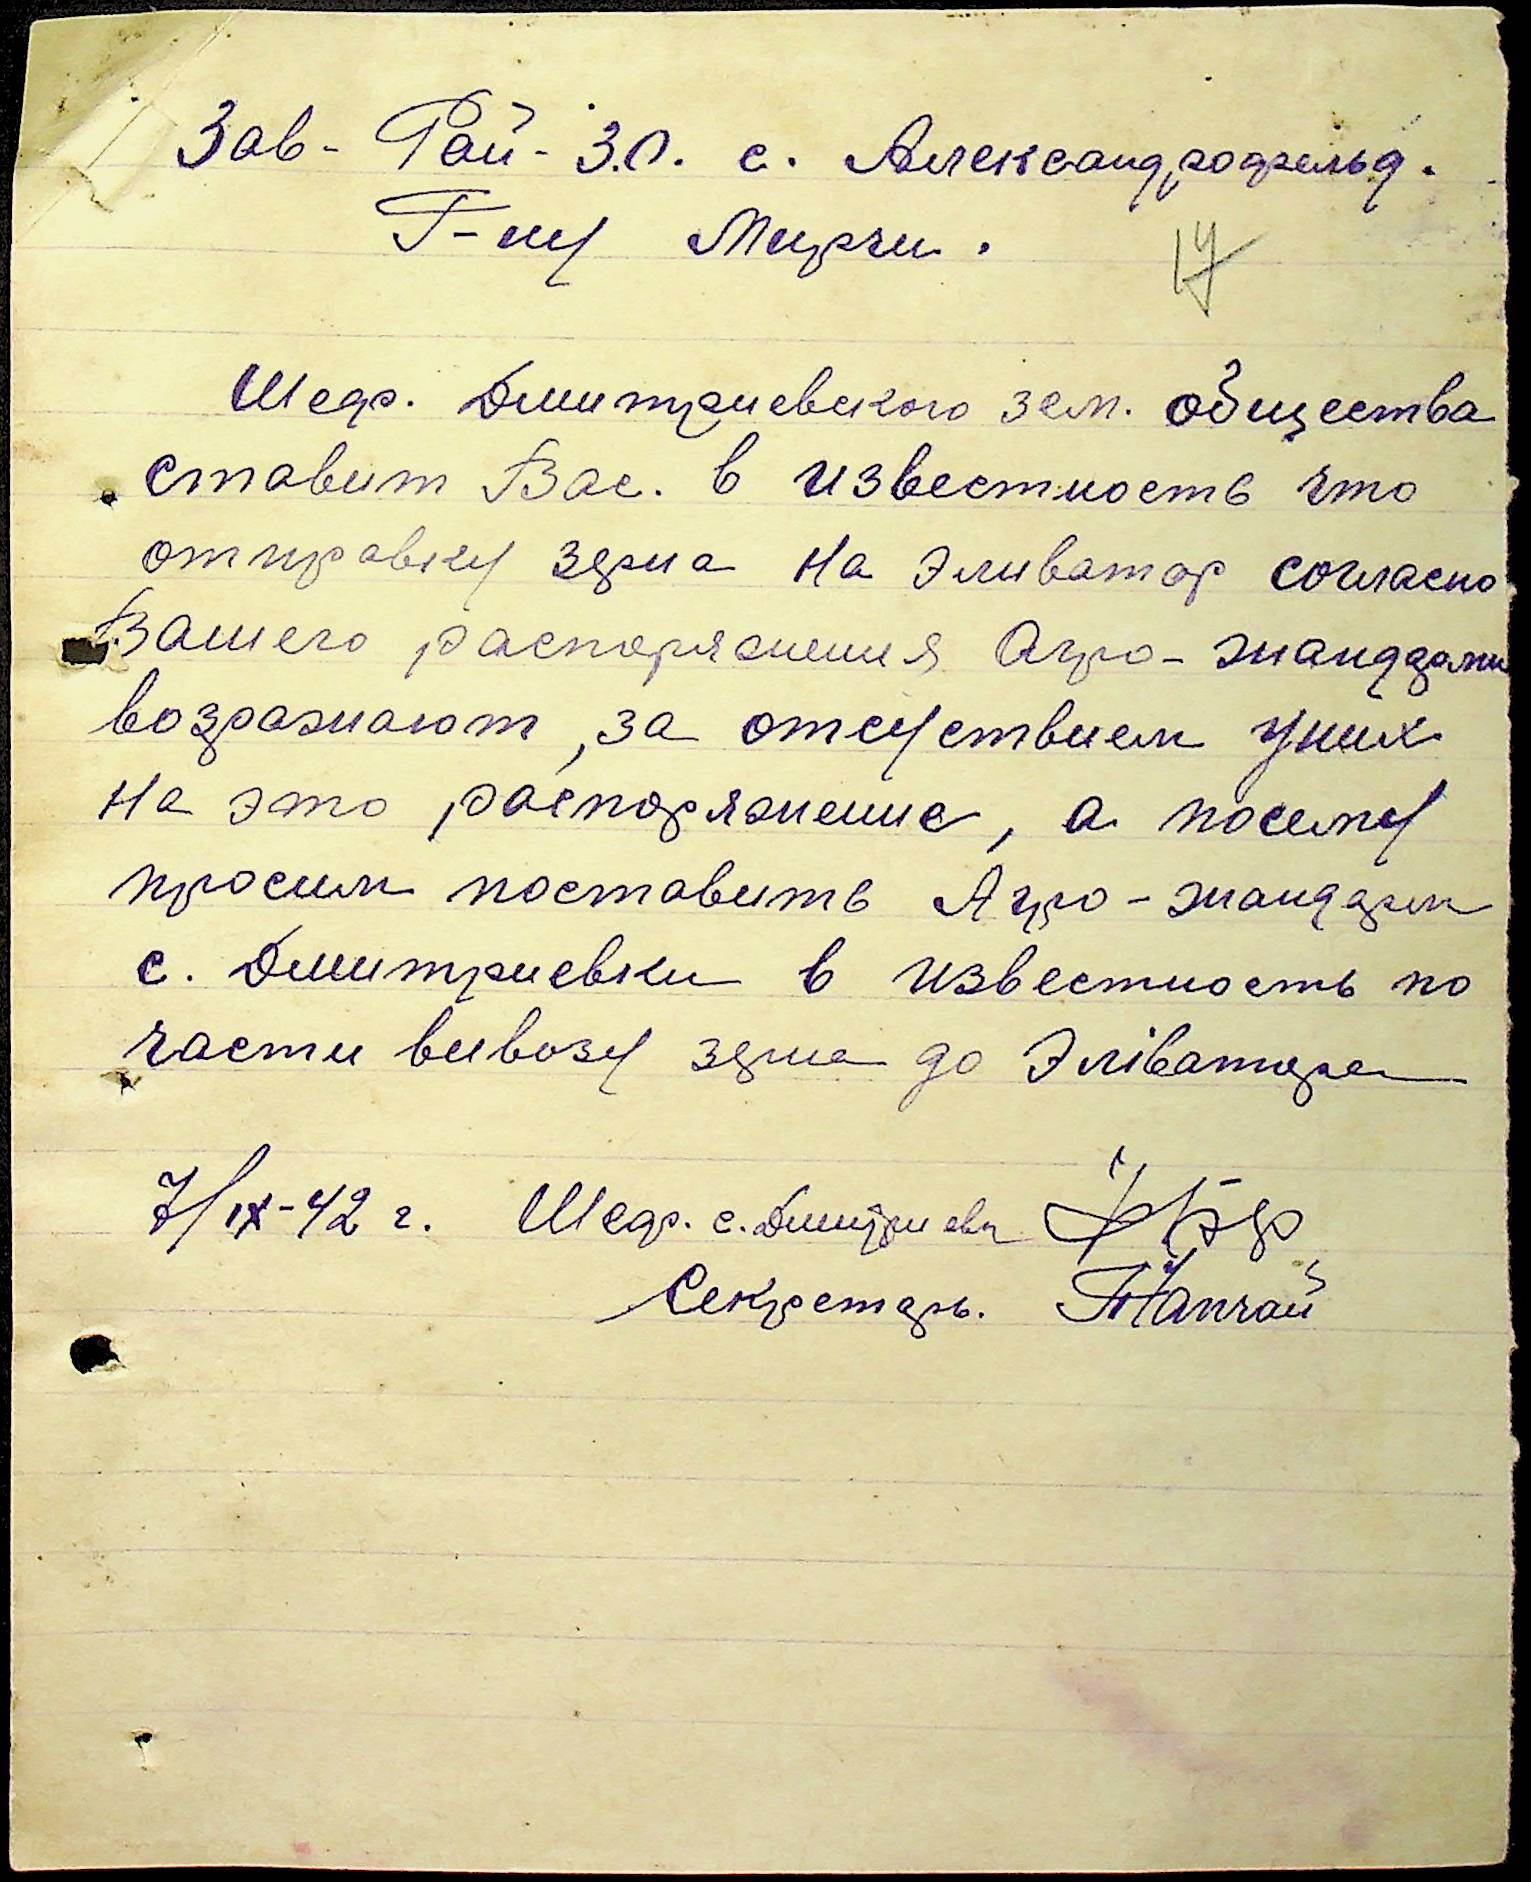 Зав- Рай- З.О. с. Александрофельд.
Г-ну Мирчи.
17
Шеф. Дмитриевского зем. общества
ставит Вас. в известность что
отправку зерна на Эливатор согласно
Вашего распоряжения Агро-жандарми
возражают, за отсуствием у них
на это распоряжение, а посему
просим поставить Агро-жандарм
с. Дмитриевки в известность по
части вивозу зерна до Эліватора
7/IX-42 г. Шеф. с. Дмитриевк
Секретарь.